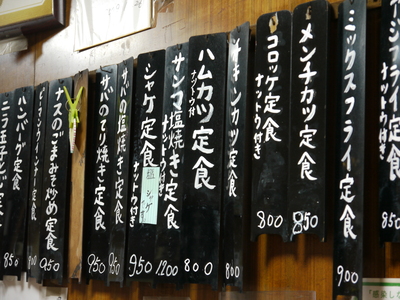 アジフライ定食
ナットウ付き
850
ミックスフライ定食
900
メンチカツ定食
ナットウ付き
850
コロッケ定食
ナットウ付き
800
チキンカツ定食
800
ハムカツ定食
ナットウ付
800
サンマ塩焼き定食
ナットウ付き
1200
シャケ定食
ナットウ付き
950
サバの塩焼き定食
950
サバのてり焼き定食
950
ナスのごまみそ炒め定食
950
ハンバーグ定食
ニラ玉子
850